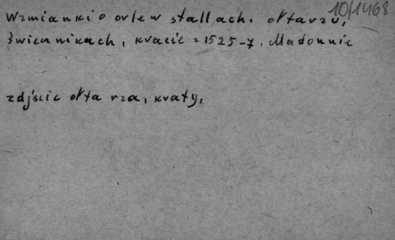 10/1468
Wzmianki o orle w stallach. ołtarzu,
świecznikach, kracie z 1525-7. Madonnie
zdjęcie ołtarza, kraty,